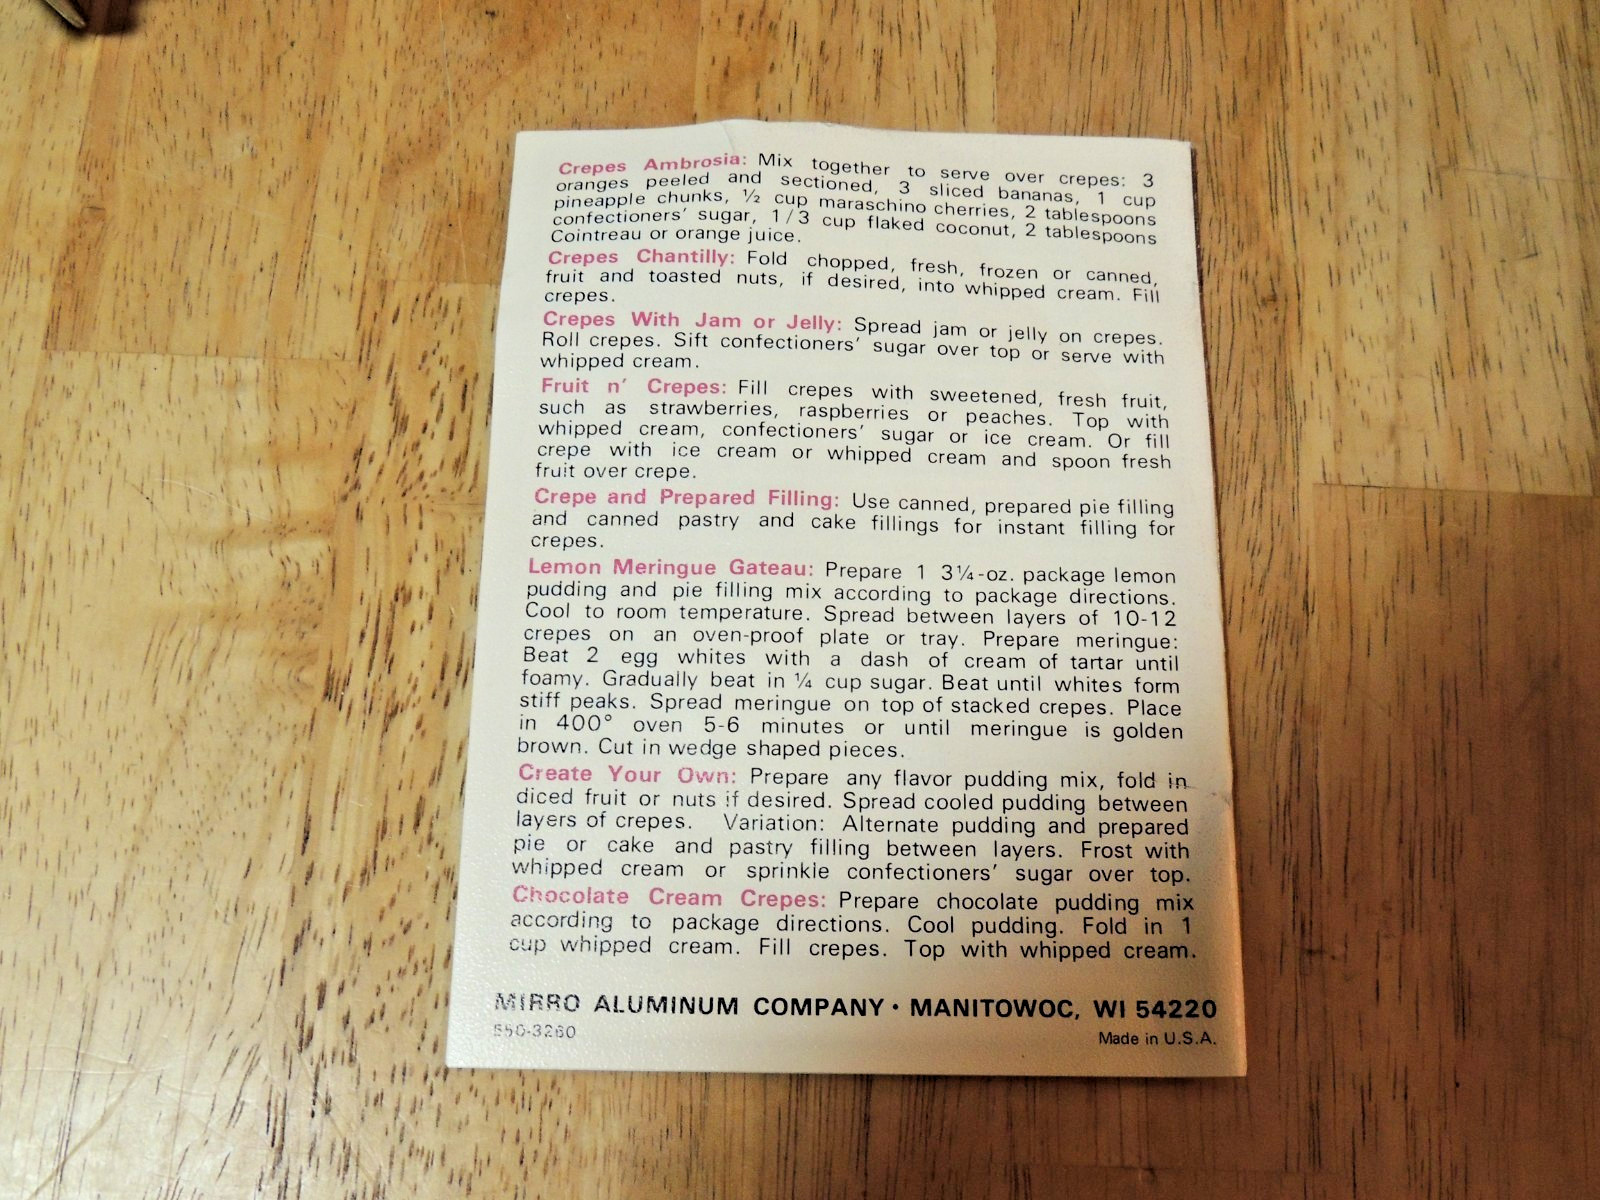 Crepes Ambrosia: Mix together to serve over crepes: 3
oranges peeled and sectioned, 3 sliced bananas, 1 cup
pineapple chunks, ½ cup maraschino cherries, 2 tablespoons
confectioners' sugar, 1/3 cup flaked coconut, 2 tablespoons
Cointreau or orange juice.
Crepes Chantilly: Fold chopped, fresh, frozen or canned,
fruit and toasted nuts, if desired, into whipped cream. Fill
crepes.
Crepes With Jam or Jelly: Spread jam or jelly on crepes.
Roll crepes. Sift confectioners' sugar over top or serve with
whipped cream.
Fruit n' Crepes: Fill crepes with sweetened, fresh fruit,
such as strawberries, raspberries or peaches. Top with
whipped cream, confectioners' sugar or ice cream. Or fill
crepe with ice cream or whipped cream and spoon fresh
fruit over crepe.
Crepe and Prepared Filling: Use canned, prepared pie filling
and canned pastry and cake fillings for instant filling for
crepes.
Lemon Meringue Gateau: Prepare 1 3¼-oz. package lemon
pudding and pie filling mix according to package directions.
Cool to room temperature. Spread between layers of 10-12
crepes on an oven-proof plate or tray. Prepare meringue:
Beat 2 egg whites with a dash of cream of tartar until
foamy. Gradually beat in ¼ cup sugar. Beat until whites form
stiff peaks. Spread meringue on top of stacked crepes. Place
in 400° oven 5-6 minutes or until meringue is golden
brown. Cut in wedge shaped pieces.
Create Your Own: Prepare any flavor pudding mix, fold in
diced fruit or nuts if desired. Spread cooled pudding between
layers of crepes. Variation: Alternate pudding and prepared
pie or cake and pastry filling between layers. Frost with
whipped cream or sprinkle confectioners' sugar over top.
Chocolate Cream Crepes: Prepare chocolate pudding mix
according to package directions. Cool pudding. Fold in 1
cup whipped cream. Fill crepes. Top with whipped cream.
MIRRO ALUMINUM COMPANY • MANITOWOC, WI 54220
550-3260
Made in U.S.A.